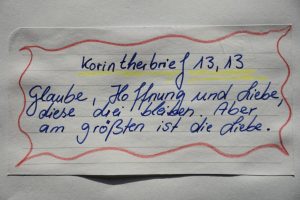 Korintherbrief 13,13
Glaube, Hoffnung und Liebe,
diese drei bleiben. Aber
am größten ist die Liebe.